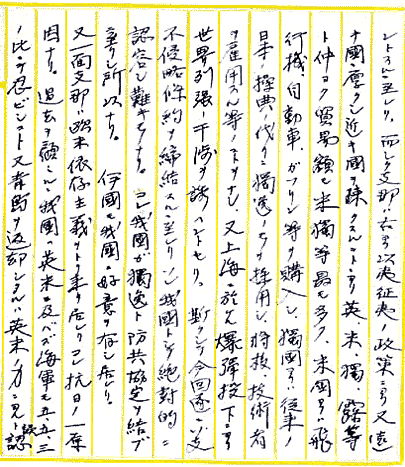 ントスルニ至レリ、而シテ支那ハ右ノ以夷征夷ノ政策ニヨリ又遠
ナ國ニ厚クシ近キ國ヲ疎クスルコトニヨリ英、米、獨 露等
ト仲ヨク貿易額モ米獨等最モ多ク、米國ヨリ飛
行機、自動車、ガソリン等ヲ購入シ、獨國ヨリ従来ノ
日本ノ操典ノ代リニ獨逸ノモノヲ採用シ、将校、技術者
ヲ雇用スル等ノコトヲナシ、又上海ニ於ケル爆弾投下ニヨリ
世界列強ノ干渉ヲ誘ハントセリ。斯クシテ今回遂ニソ支
不侵略條約ヲ締結スルニ至レリ、コハ我國トシテ絶対的ニ
認容シ難キモノナリ。コレ我國ガ獨逸ト防共協定ヲ結ブ
ニ至リシ所以ナリ。 伊國モ我國ニ好意ヲ有シ居レリ。
又一面支那ハ欧米依存主義ヲトリ来リ居レリコレ抗日ノ一原
因ナリ。過去ヲ顧ミルニ我國ハ英米ニ及バズ海軍モ五、五、三
ノ比ニテ忍ビシコト又青島ヲ返却シタルハ英米ノ力ニ見、誤認